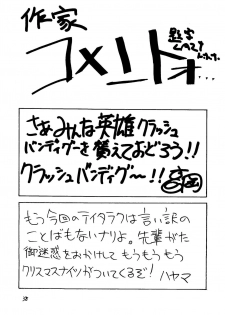 作家
コメント
さぁみんな英雄クラッシュ
バンディグーを讃えておどろう!!
クラッシュバンディグ〜!!
もう今回のテイタラクは言い訳の
ことばもないナリよ。先輩がた
御迷惑をおかけしてもうもうもう
クリスマスナイツがついてくるぞ!
ハヤマ